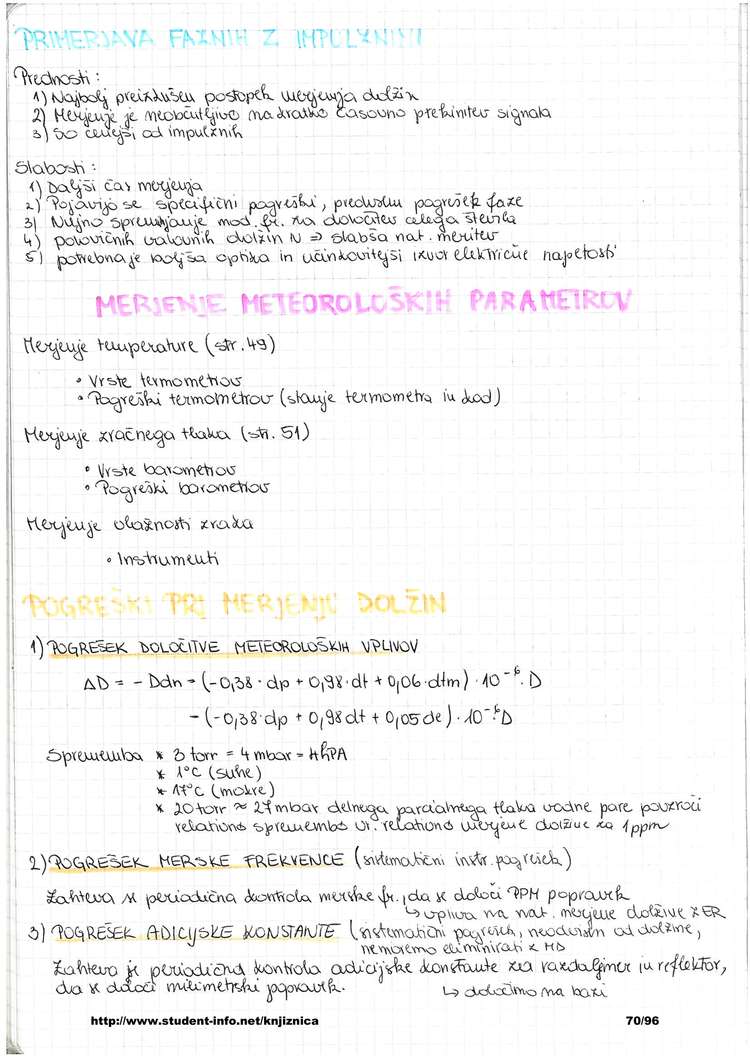 PRIMERJAVA FAZNIH Z IMPULZNIMI
Prednosti :
1) Najbolj preizkušen postopek merjenja dolžin
2) Merjenje je neobčutljivo na kratko časovno prekinitev signala
3) So cenejši od impulznih
Slabosti :
1) Daljši čas merjenja
2) Pojavijo se specifični pogreški, predvsem pogrešek faze
3) Nujno spreminjanje mod. fr. za določitev celega števila
4) polovičnih valovnih dolžin N ⇒ slabša nat. meritev
5) potrebna je boljša optika in učinkovitejši izvor električne napetosti
MERJENJE METEOROLOŠKIH PARAMETROV
Merjenje temperature (str. 49)
• Vrste termometrov
• Pogreški termometrov (stanje termometra in kod)
Merjenje zračnega tlaka (str. 51)
• Vrste barometrov
• Pogreški barometrov
Merjenje vlažnosti zraka
• Instrumenti
POGREŠKI PRI MERJENJU DOLŽIN
1) POGREŠEK DOLOČITVE METEOROLOŠKIH VPLIVOV
ΔD = - Ddn - (-0,38 · dp + 0,98 · dt + 0,06 · dtm) · 10⁻⁶ · D
- (-0,38 · dp + 0,98 dt + 0,05 de) · 10⁻⁶ · D
Sprememba * 3 torr = 4 mbar = 4hPA
* 1°C (suhe)
* 17°C (mokre)
* 20 torr ≈ 27 mbar delnega parcialnega tlaka vodne pare povzroči
relativno spremembo oz. relativno merjene dolžine za 1 ppm
2) POGREŠEK MERSKE FREKVENCE (sistematični instr. pogrešek)
Zahteva se periodična kontrola merske fr., da se določi PPM popravek
↳ vpliva na nat. merjene dolžine z ER
3) POGREŠEK ADICIJSKE KONSTANTE (sistematični pogrešek, neodvisen od dolžine,
nemoremo eliminirati z MD
Zahteva je periodična kontrola adicijske konstante za razdaljmer in reflektor,
da se določi milimetrski popravek.
↳ določimo na bazi
http://www.student-info.net/knjiznica
70/96